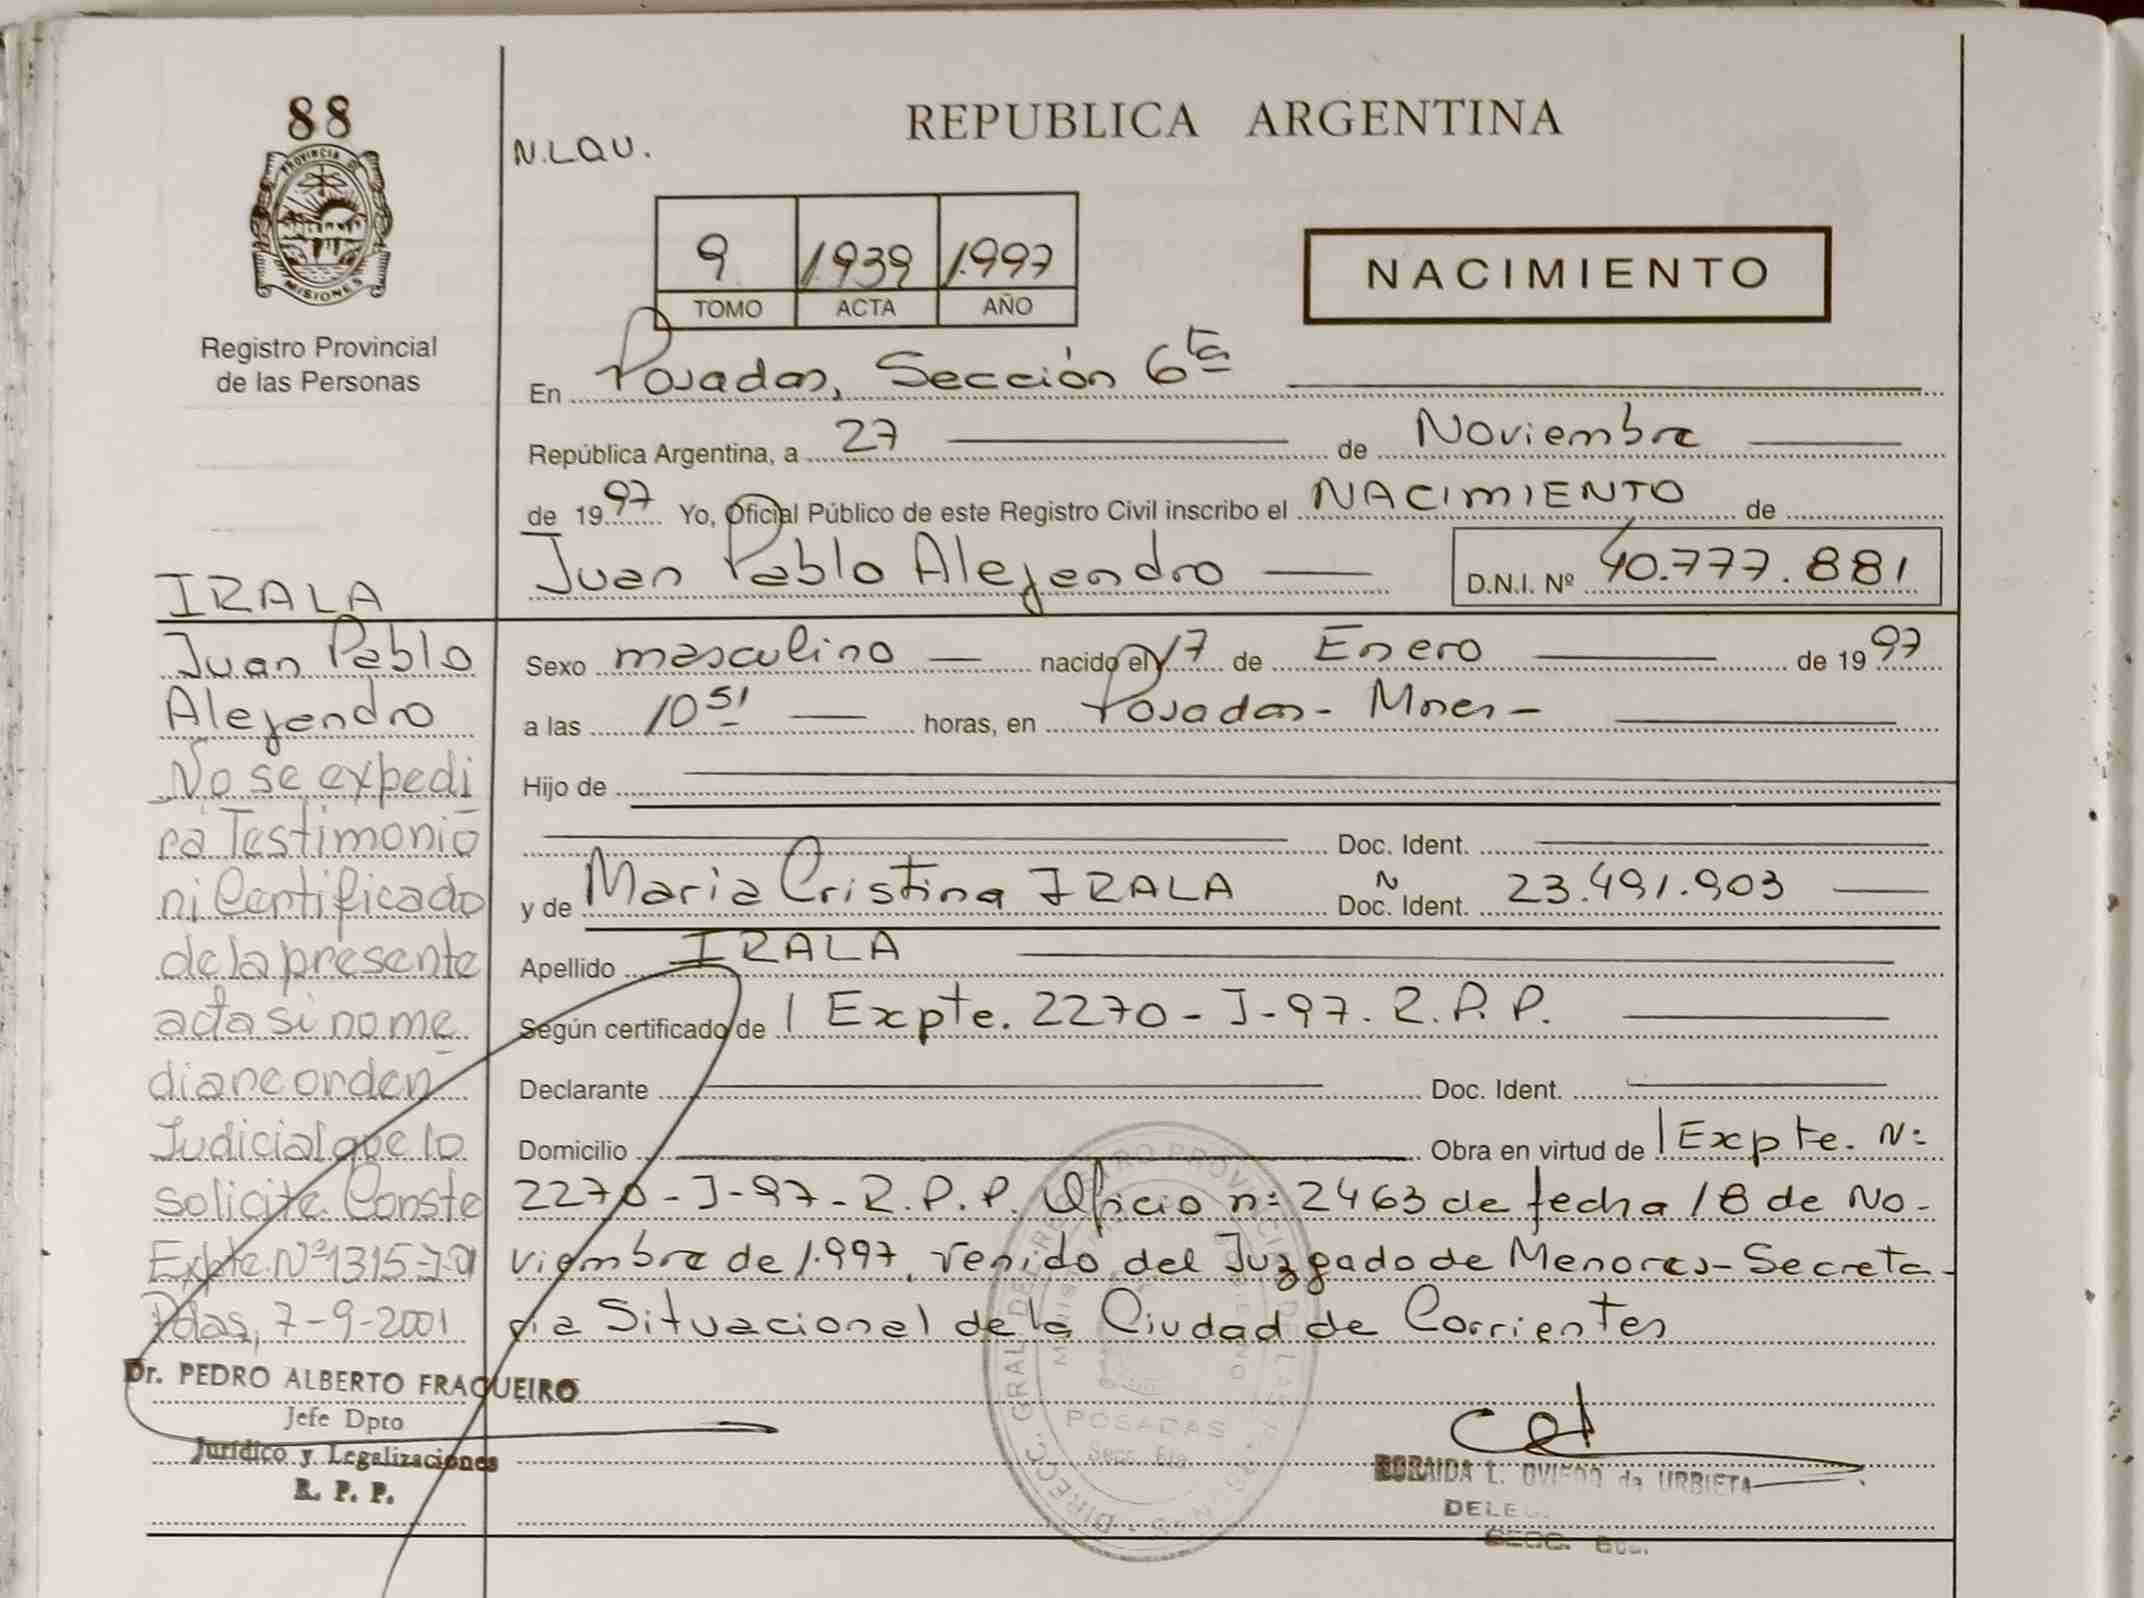 88
PROVINCIA DE
MISIONES
Registro Provincial
de las Personas
IRALA
Juan Pablo
Alejandro
No se expedi
rá Testimonio
ni Certificado
de la presente
acta si no me
diare orden
Judicial que lo
solicite. Conste
Expte. Nº 1315-J-01
Pdas, 7-9-2001
Dr. PEDRO ALBERTO FRAQUEIRO
Jefe Dpto
Jurídico y Legalizaciones
R. P. P.
N.LQU.
REPUBLICA ARGENTINA
9 1.939 1.997
TOMO ACTA AÑO
NACIMIENTO
En Posadas, Sección 6ta
República Argentina, a 27 de Noviembre
de 1997 Yo, Oficial Público de este Registro Civil inscribo el NACIMIENTO de
Juan Pablo Alejandro D.N.I. Nº 40.777.881
Sexo masculino nacido el 17 de Enero de 1997
a las 10 51 horas, en Posadas - Mnes -
Hijo de
Doc. Ident.
y de Maria Cristina IRALA Doc. Ident. N 23.491.903
Apellido IRALA
Según certificado de | Expte. 2270-J-97. R.P.P.
Declarante Doc. Ident.
Domicilio Obra en virtud de | Expte. Nº
2270-J-97-R.P.P. Oficio nº 2463 de fecha 18 de No-
viembre de 1.997, venido del Juzgado de Menores-Secreta-
ria Situacional de la Ciudad de Corrientes
DIRECC. GRAL DEL REGISTRO PROVINCIAL DE LAS
POSADAS
Secc. 6ta.
ZORAIDA L. OVIEDO de URBIETA
SECC. 6ta.